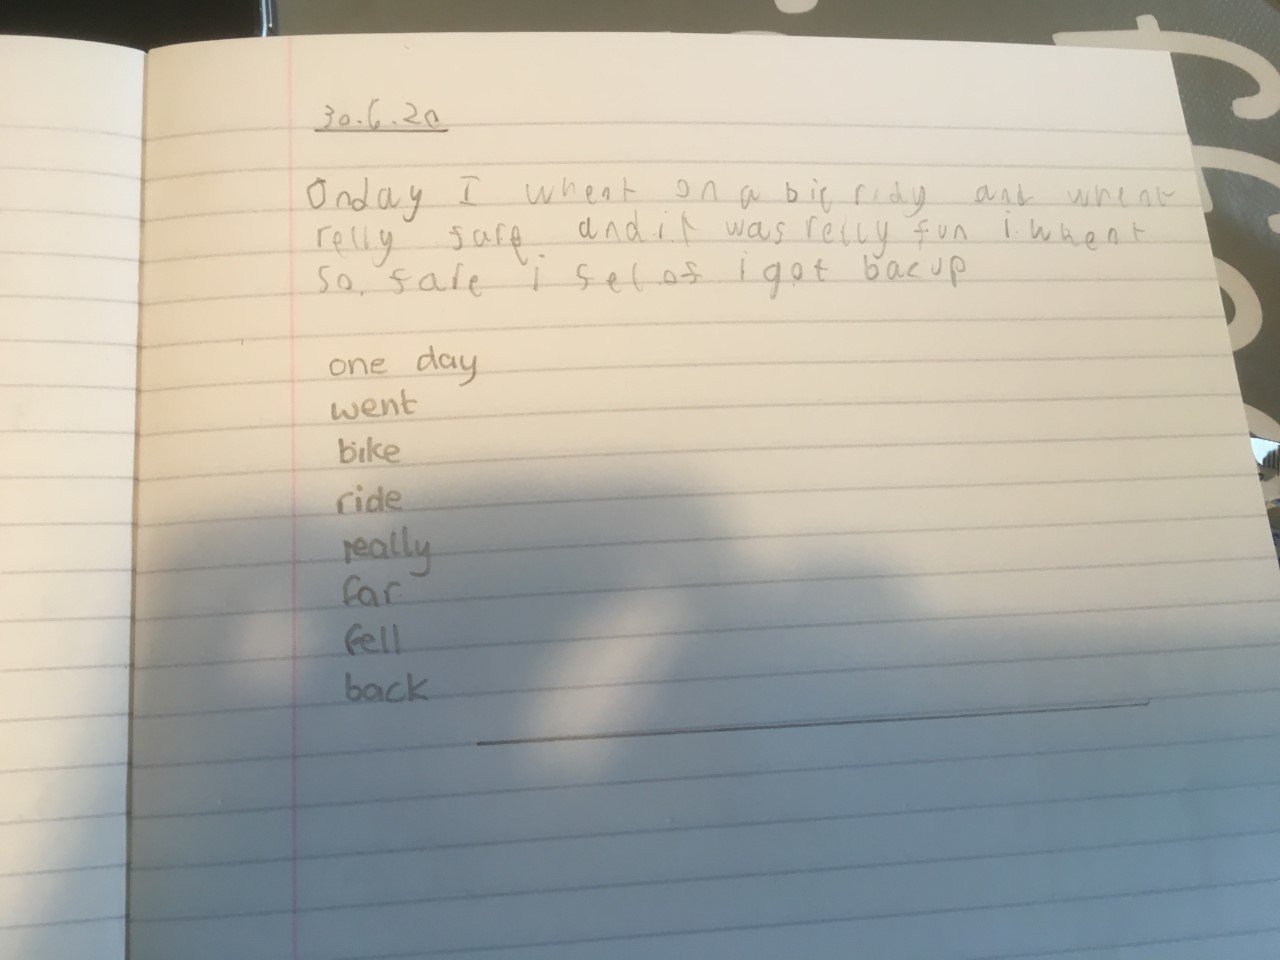 30.6.20
Onday I whent on a bic ridy and whent
relly fare and it was relly fun i whent
so fare i fel of i got bac up
one day
went
bike
ride
really
far
fell
back